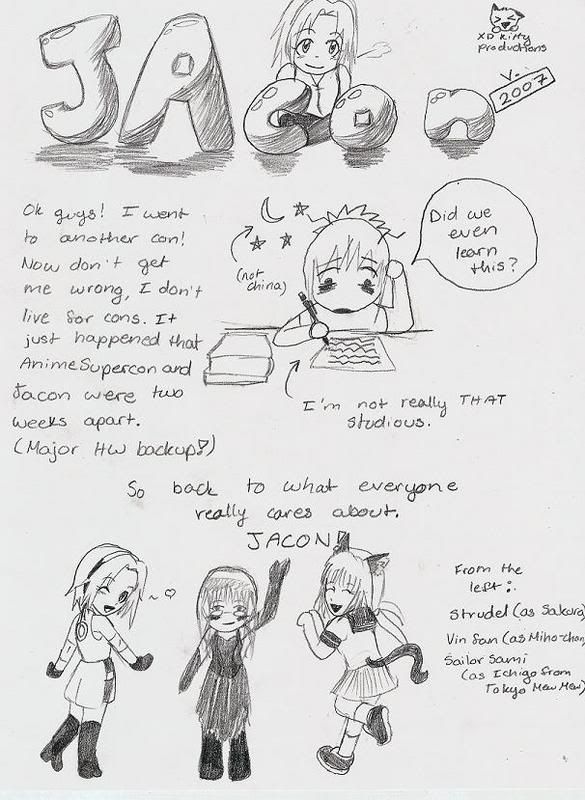 JACon
V. 2007
XD Kitty
Productions
Ok guys! I went
to another con!
Now don't get
me wrong, I don't
live for cons. It
just happened that
AnimeSupercon and
Jacon were two
weeks apart.
(Major HW backup!)
(not
china)
Did we
even
learn
this?
I'm not really THAT
studious.
So back to what everyone
really cares about.
JACON!
From the
left:
Strudel (as Sakura)
Vin San (as Miho-chan)
Sailor Sami
(as Ichigo from
Tokyo Mew Mew)